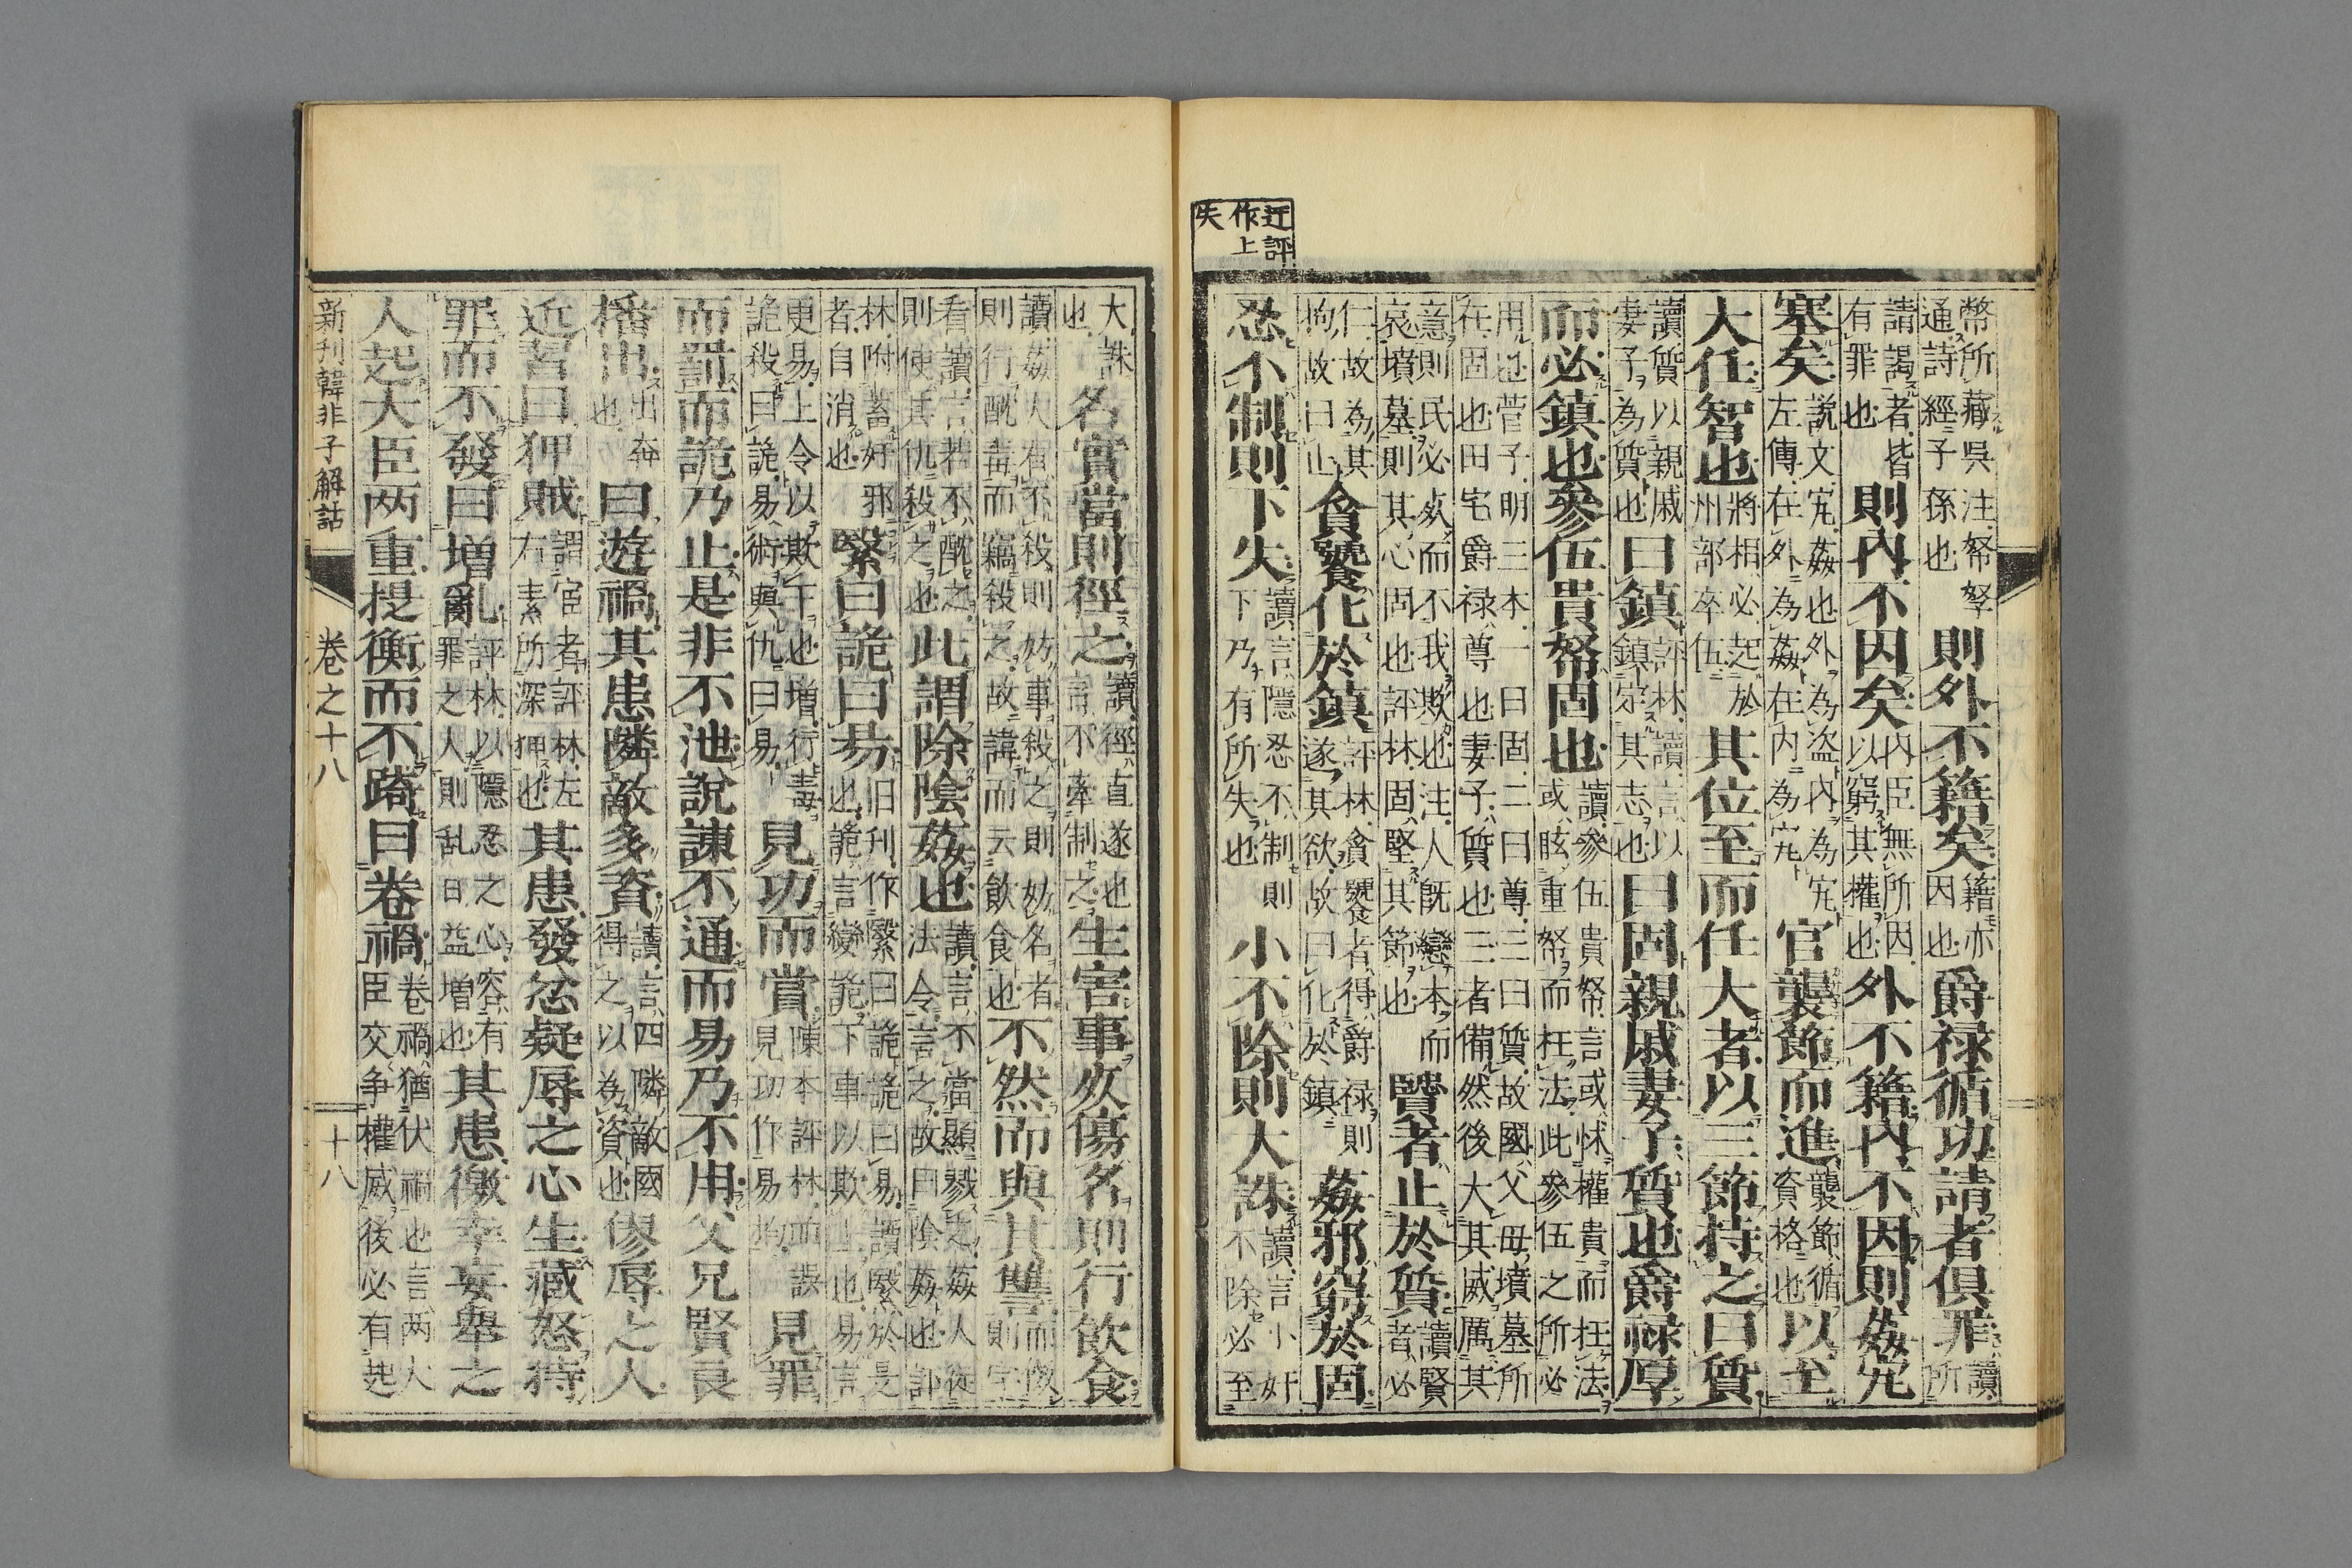 近評
作上
失
幣所藏吳注帑孥通詩經子孫也則外不籍矣籍亦因也爵禄循功請者俱罪讀所
請謁者皆有罪也則內不因矣內臣無所因以窮其權也外不籍內不因則姦宄
塞矣說文宄姦也外為盗內為宄左傳在外為姦在內為宄官襲節而進襲節循資格也以至
大任智也將相必起於州部卒伍其位至而任大者以三節持之曰質
讀質以親戚妻子為質也曰鎮評林讀言以鎮定其志也曰固親戚妻子質也爵禄厚
而必鎮也參伍貴帑固也讀參伍貴帑言或怵權貴而枉法或眩重帑而枉法此參伍之所必
用也菅子明三本一曰固二曰尊三曰質故國父母墳墓所在固也田宅爵禄尊也妻子質也三者備然後大其威厲其
意則民必死而不我欺也注人既戀本而哀墳墓則其心固也評林固堅其節也賢者止於質讀賢者必
仁故為其拘故曰止貪饕化於鎮評林貪饕者得爵禄則遂其欲故曰化於鎮姦邪窮於固
忍不制則下失讀言隱忍不制則下乃有所失也小不除則大誅讀言小奸不除必至
大誅也名實當則徑之讀徑直遂也言不牽制之生害事死傷名則行飲食
讀姦人有不殺則妨事殺之則妨名者則行酖毒而竊殺之故諱而云飲食也不然而與其讐而則字
看讀言若不酖之則使其仇殺之也此謂除陰姦也讀言不當顯戮之姦人從法令言之故曰陰姦也評
林附蓄好邪者自消也翳曰詭曰易旧刊作翳曰詭詭曰易讀翳於是也詭言變詭下車以欺上也易言
更易上令以欺下也増行詭殺曰詭易術與仇曰易見功而賞陳本評林而誤見功作易見罪
而罰而詭乃止是非不泄說諫不通而易乃不用父兄賢良
播出出奔也曰遊禍其患隣敵多資讀言四隣敵國得之以為資也僇辱之人
近習曰狎賊謂宦者評林左右素所深狎也其患發忿疑辱之心生藏怒持
罪而不發曰增亂評林以隱忍之心容有罪之人則乱日益増也其患徼幸妄舉之
人起大臣两重提衡而不踦曰卷禍卷禍猶伏禍也言两大臣交争權威後必有起
新刊韓非子解詁 卷之十八 十八